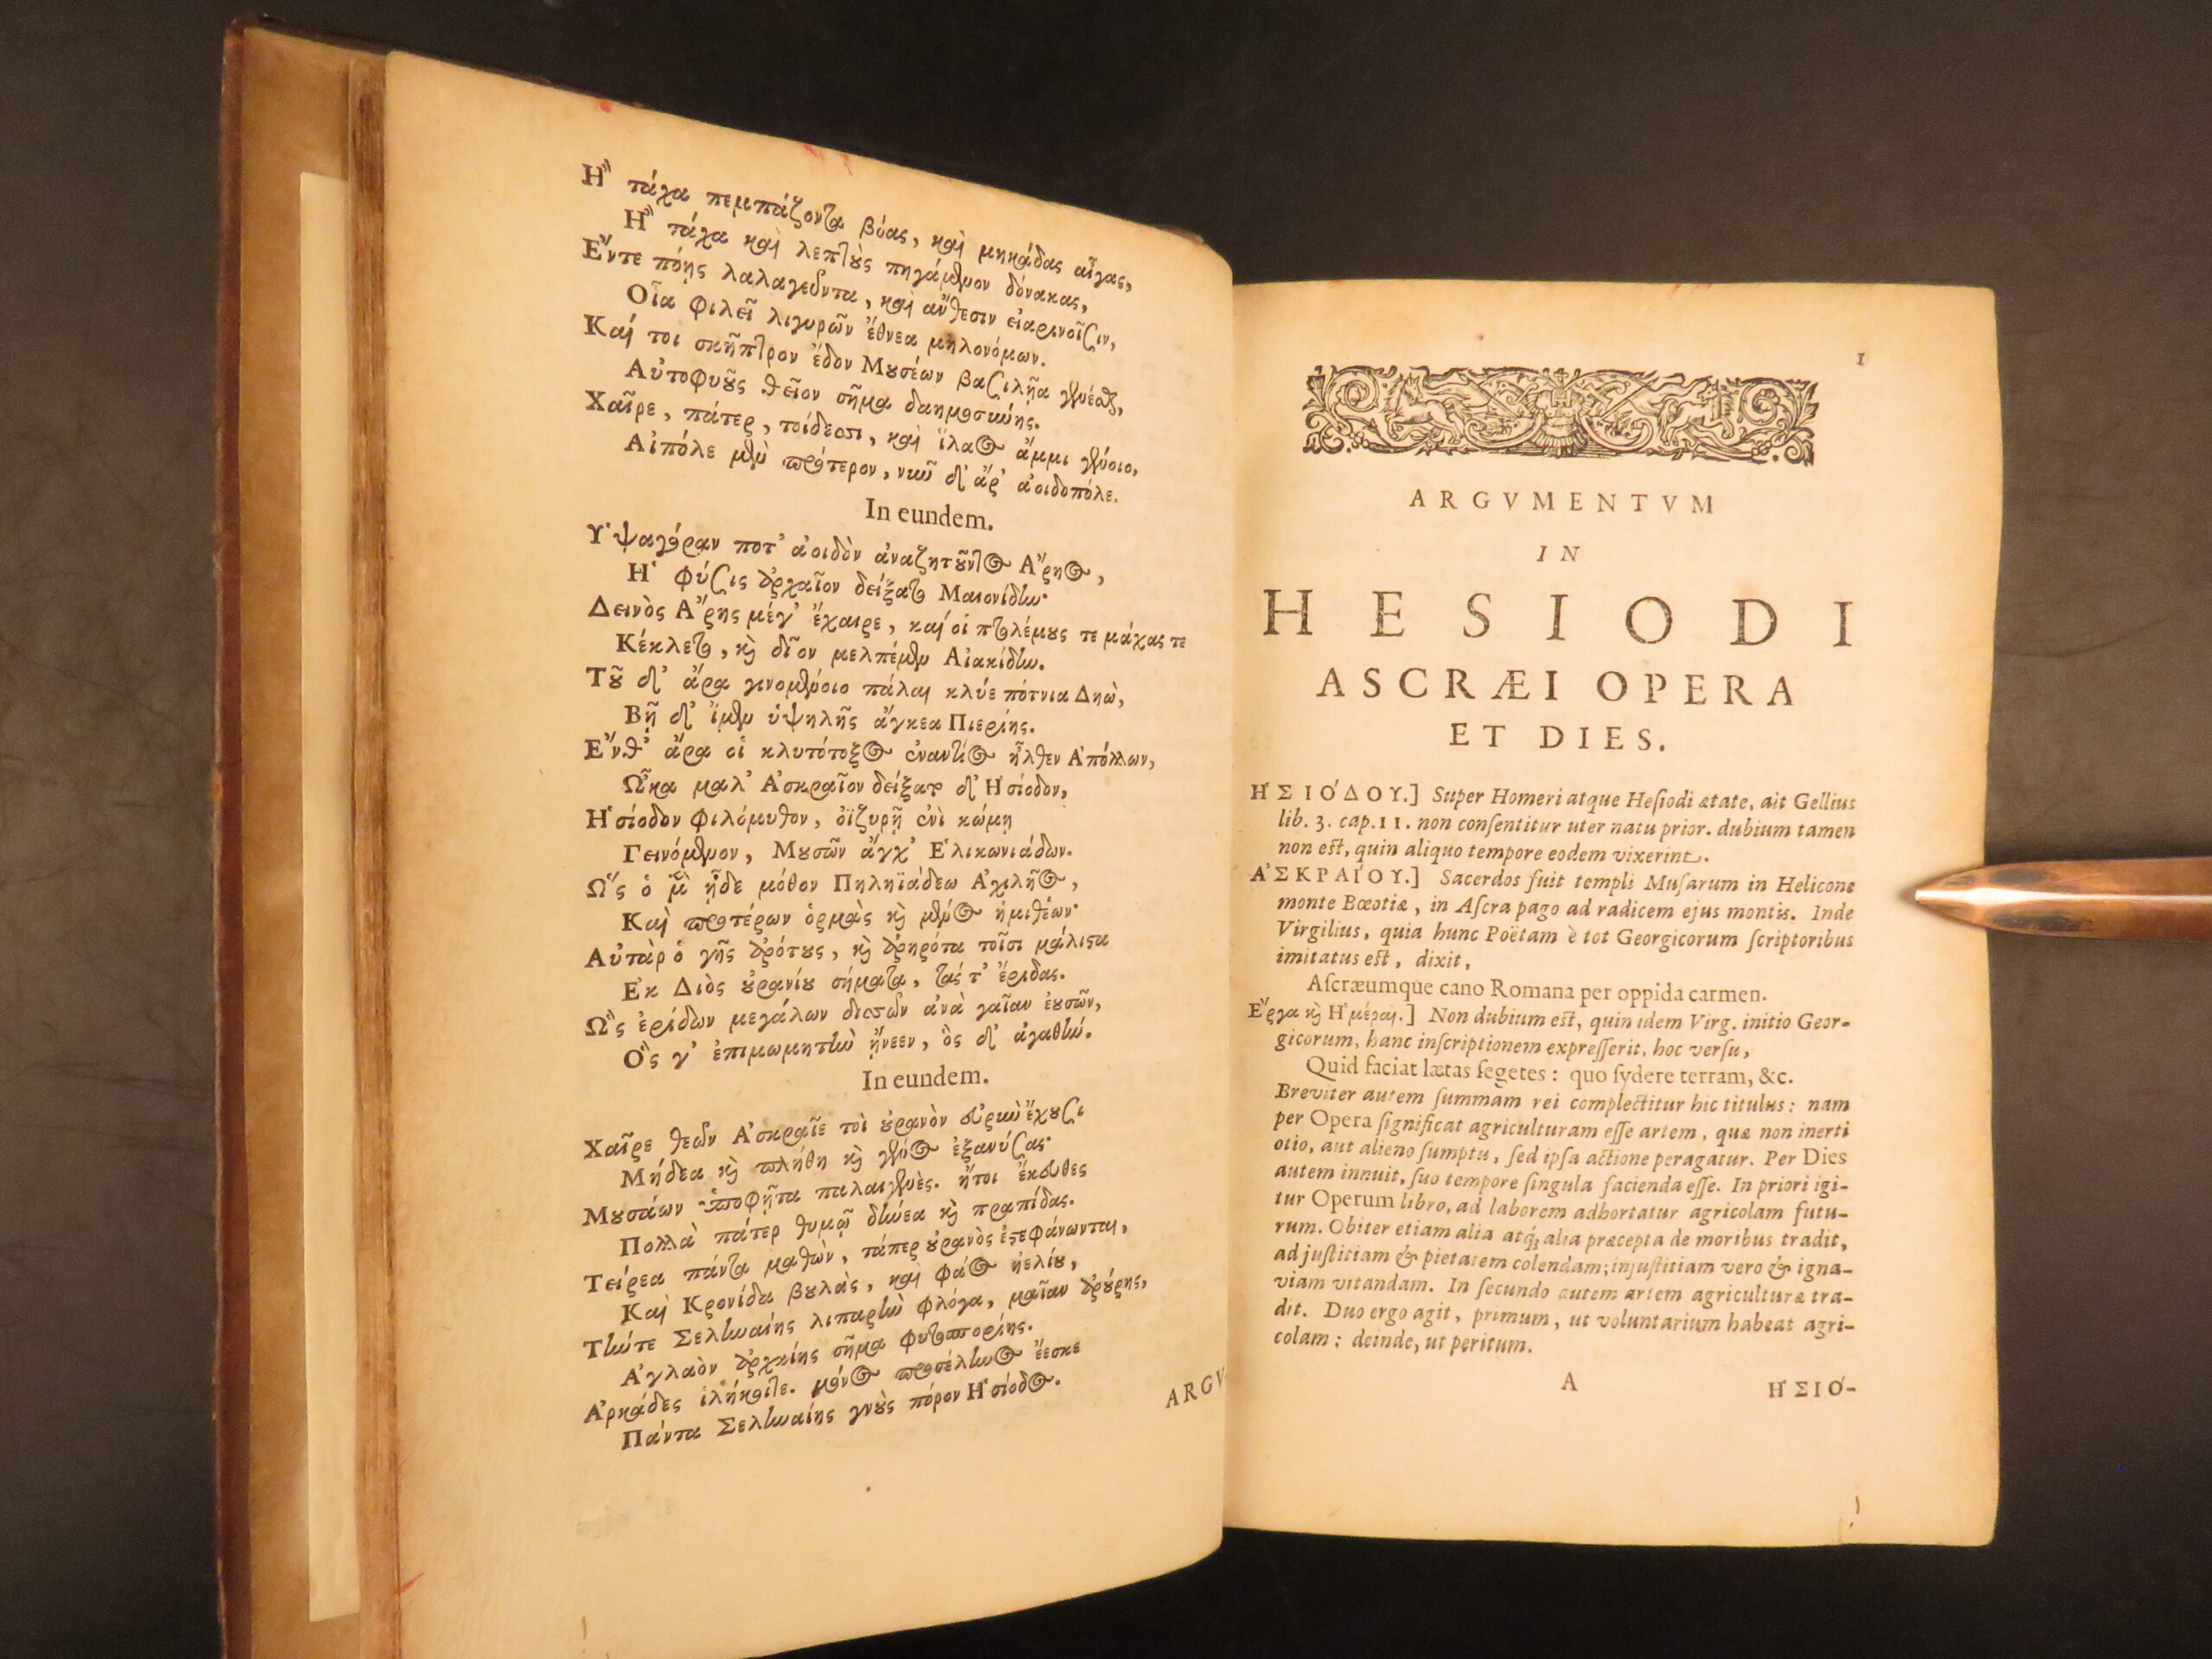 Ἢ τάχα πεμπάζοντα βόας, καὶ μηκάδας αἶγας,
Ἢ τάχα καὶ λεπτοὺς πηγάμενον δόνακας,
Εὖντε πόης λαλαγεῦντα, καὶ ἄνθεσιν εἰαρινοῖσιν,
Οἷα φιλεῖ λιγυρῶν ἔθνεα μηλονόμων.
Καί τοι σκῆπτρον ἔδον Μουσέων βασιλῆα γενέσθαι,
Αὐτοφυοῦς θεῖον σῆμα δαημοσύνης.
Χαῖρε, πάτερ, τοίδεσσι, καὶ ἵλαος ἄμμι γένοιο,
Αἰπόλε μὲν πρότερον, νῦν δ' ἄρ' ἀοιδοπόλε.
In eundem.
Ὑψαγόραν ποτ' ἀοιδὸν ἀναζητοῦντος Ἄρηος,
Ἡ φύσις ἀρχαῖον δείξατο Μαιονίδην·
Δεινὸς Ἄρης μέγ' ἔχαιρε, καί οἱ πτολέμους τε μάχας τε
Κέκλετο, καὶ δῖον μελπέμεν Αἰακίδην.
Τοῦ δ' ἄρα γινομένοιο πάλαι κλύε πότνια Δηὼ,
Βῆ δ' ἴμεν ὑψηλῆς ἄγκεα Πιερίης.
Ἔνθ' ἄρα οἱ κλυτότοξος ἐναντίος ἦλθεν Ἀπόλλων,
Ὦκα μαλ' Ἀσκραῖον δείξατο δ' Ἡσίοδον,
Ἡσίοδον φιλόμυθον, ὀϊζυρῇ ἐνὶ κώμῃ
Γεινόμενον, Μουσῶν ἄγχ' Ἑλικωνιάδων.
Ὣς ὁ μὲν ᾖδε μόθον Πηληϊάδεω Ἀχιλῆος,
Καὶ προτέρων ὁρμὰς καὶ μένος ἡμιθέων·
Αὐτὰρ ὁ γῆς ἀρότους, καὶ ἀρηρότα τοῖσι μάλιστα
Ἐκ Διὸς οὐρανίου σήματα, τάς τ' ἔριδας.
Ὣς ἐρίδων μεγάλων δισσῶν ἀνὰ γαῖαν ἐουσῶν,
Ὃς γ' ἐπιμωμητὴν ᾔνεεν, ὃς δ' ἀγαθήν.
In eundem.
Χαῖρε, θεῶν Ἀσκραῖε τοὶ οὐρανὸν εὐρὺν ἔχουσι
Μήδεα καὶ πλήθη καὶ γένος ἐξανύσας·
Μουσάων ὑποφῆτα παλαιγενὲς. ἤτοι ἔκευθες
Πολλὰ πάτερ θυμῷ δήνεα καὶ πραπίδας.
Τείρεα πάντα μαθὼν, τάπερ οὐρανὸς ἐστεφάνωνται,
Καὶ Κρονίδα βουλὰς, καὶ φάος ἠελίου,
Τήν τε Σεληναίης λιπαρὴν φλόγα, μαῖαν ἀρούρης,
Ἀγλαὸν ἀρχαίης σῆμα φυτοσπορίης.
Ἀρκάδες ἱλήκοιτε. μόνος προσέληνος ἔεσκε
Πάντα Σεληναίης γνοὺς πόρον Ἡσίοδος.
ARGV-
1
ARGVMENTVM
IN
HESIODI
ASCRÆI OPERA
ET DIES.
ἩΣΙΌΔΟΥ.] Super Homeri atque Hesiodi ætate, ait Gellius
lib. 3. cap. 11. non consentitur uter natu prior. dubium tamen
non est, quin aliquo tempore eodem vixerint.
ἈΣΚΡΑΊΟΥ.] Sacerdos fuit templi Musarum in Helicone
monte Bœotiæ, in Ascra pago ad radicem ejus montis. Inde
Virgilius, quia hunc Poëtam è tot Georgicorum scriptoribus
imitatus est, dixit,
Ascræumque cano Romana per oppida carmen.
Ἔργα καὶ Ἡμέραι.] Non dubium est, quin idem Virg. initio Geor-
gicorum, hanc inscriptionem expresserit, hoc versu,
Quid faciat lætas segetes: quo sydere terram, &c.
Breviter autem summam rei complectitur hic titulus: nam
per Opera significat agriculturam esse artem, quæ non inerti
otio, aut alieno sumptu, sed ipsa actione peragatur. Per Dies
autem innuit, suo tempore singula facienda esse. In priori igi-
tur Operum libro, ad laborem adhortatur agricolam futu-
rum. Obiter etiam alia atq; alia præcepta de moribus tradit,
ad justitiam & pietatem colendam; injustitiam vero & igna-
viam vitandam. In secundo autem artem agriculturæ tra-
dit. Duo ergo agit, primum, ut voluntarium habeat agri-
colam: deinde, ut peritum.
A
ἩΣΙΌ-